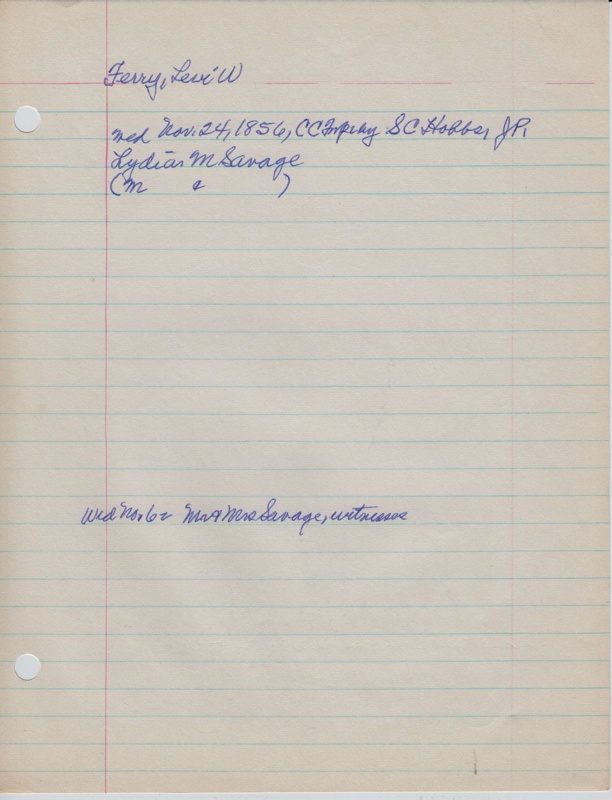 Ferry, Levi W
wed Nov. 24, 1856, CC Twp by S C Hobbs, J P,
Lydia M Savage
( M & )
Wed No. 62 Mr & Mrs Savage, witnesses